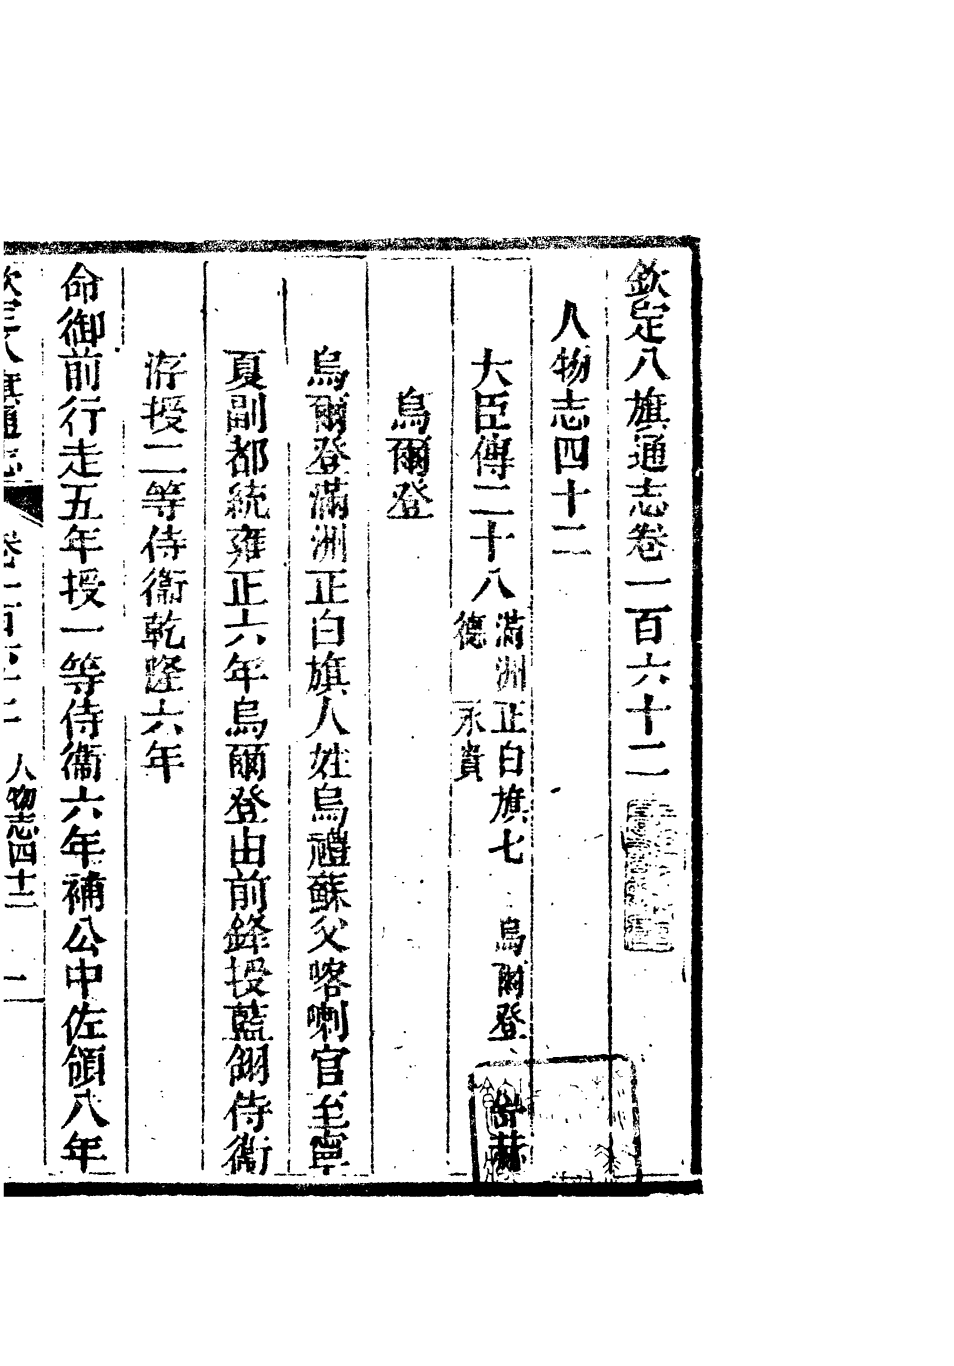 欽定八旗通志卷一百六十二
人物志四十二
大臣傳二十八 滿洲正白旗七 烏爾登 赫
德 永貴
烏爾登
烏爾登滿洲正白旗人姓烏禮蘇父喀喇官至寧
夏副都統雍正六年烏爾登由前鋒授藍翎侍衛
洊授二等侍衛乾隆六年
命御前行走五年授一等侍衛六年補公中佐領八年
人物志四十二 一